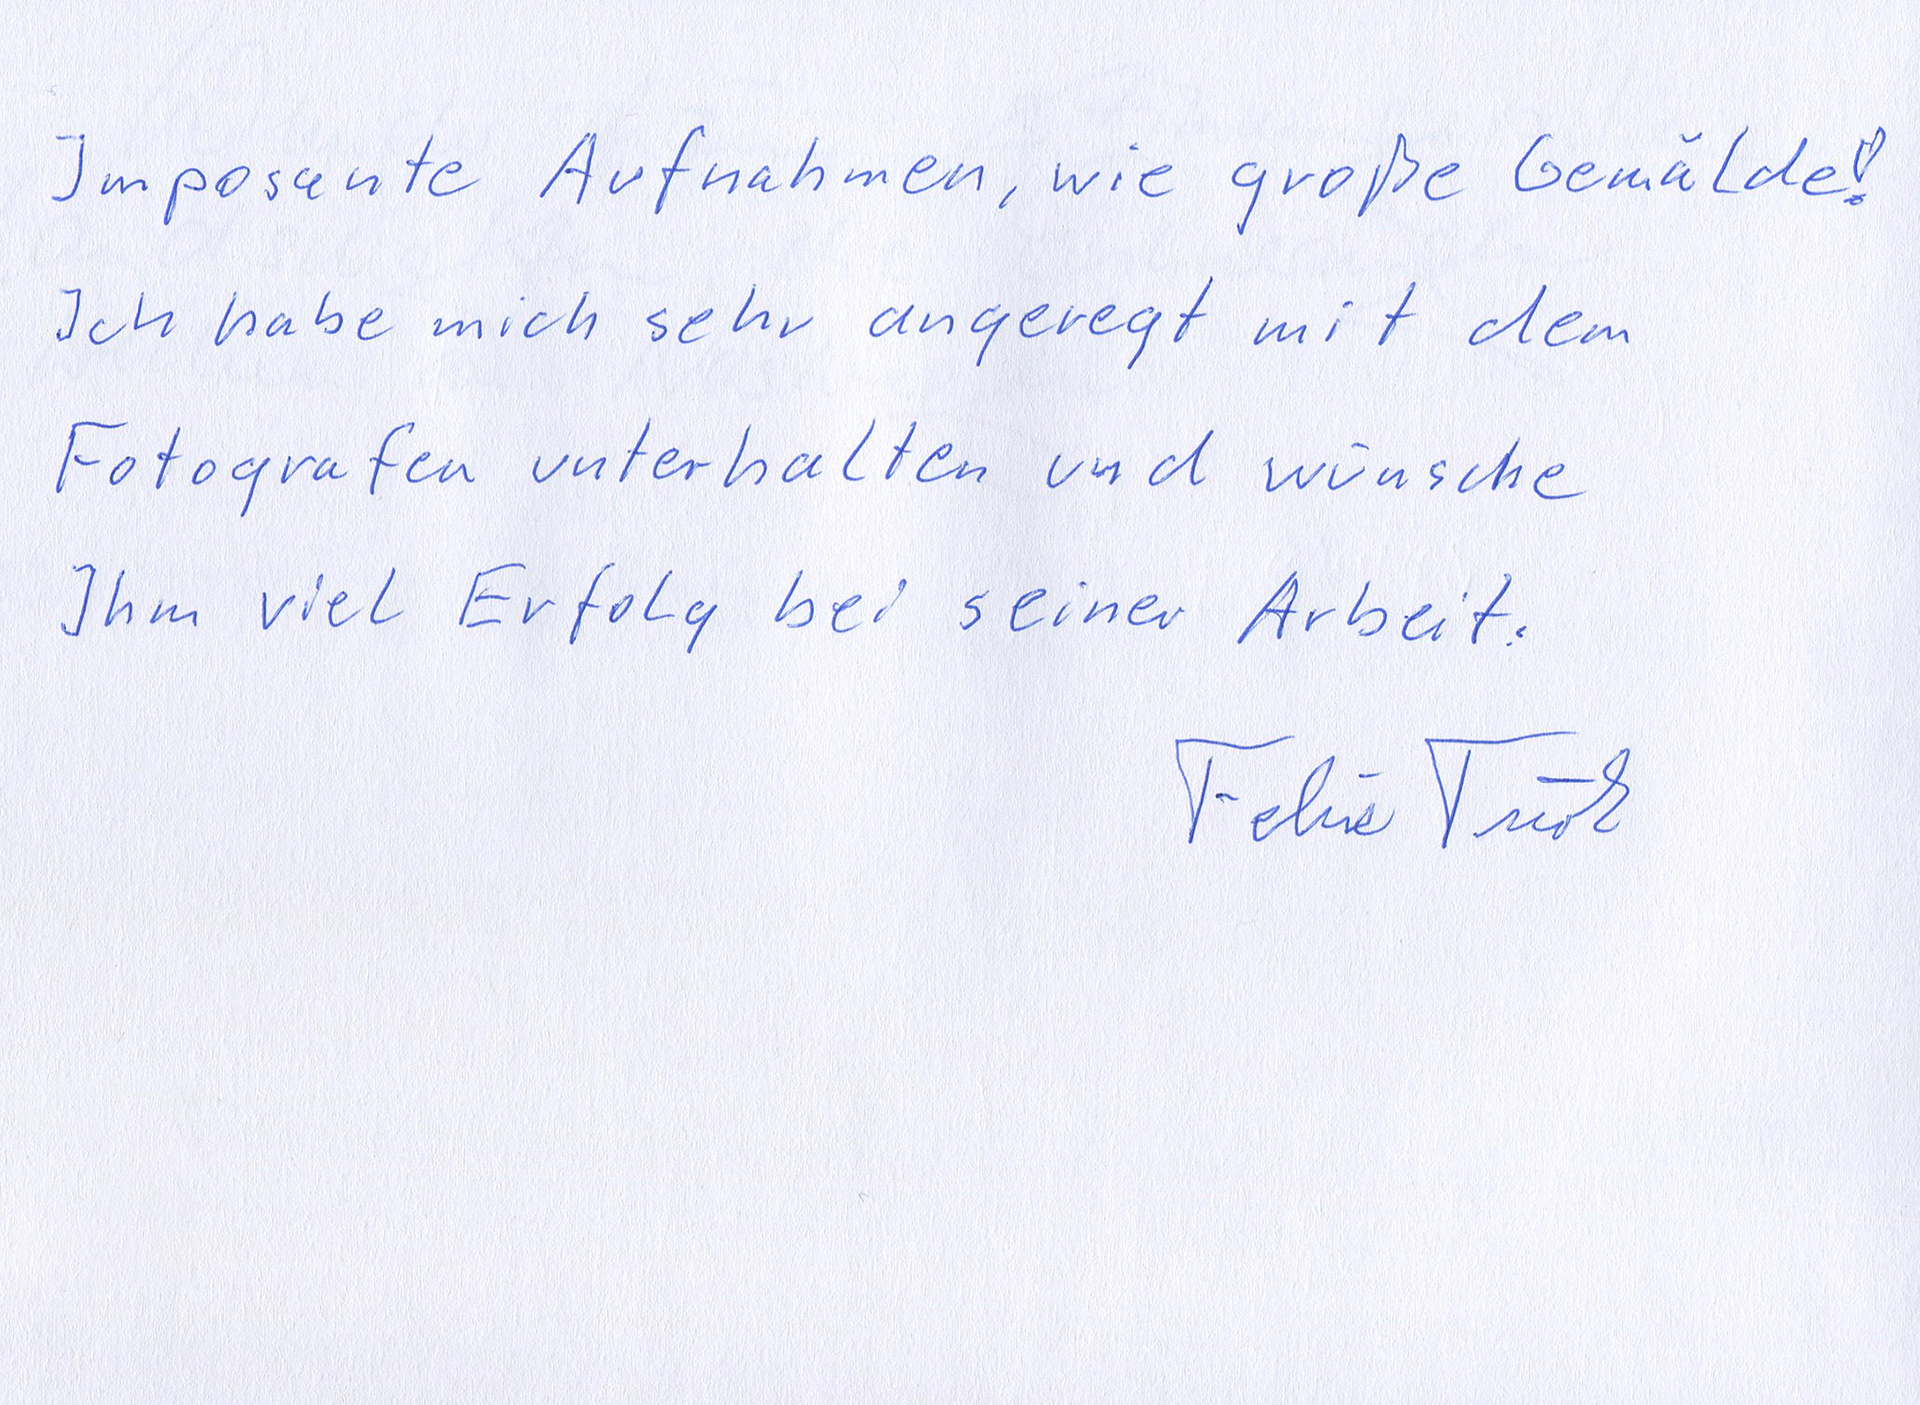 Imposante Aufnahmen, wie große Gemälde!
Ich habe mich sehr angeregt mit dem
Fotografen unterhalten und wünsche
Ihm viel Erfolg bei seiner Arbeit.
Felix